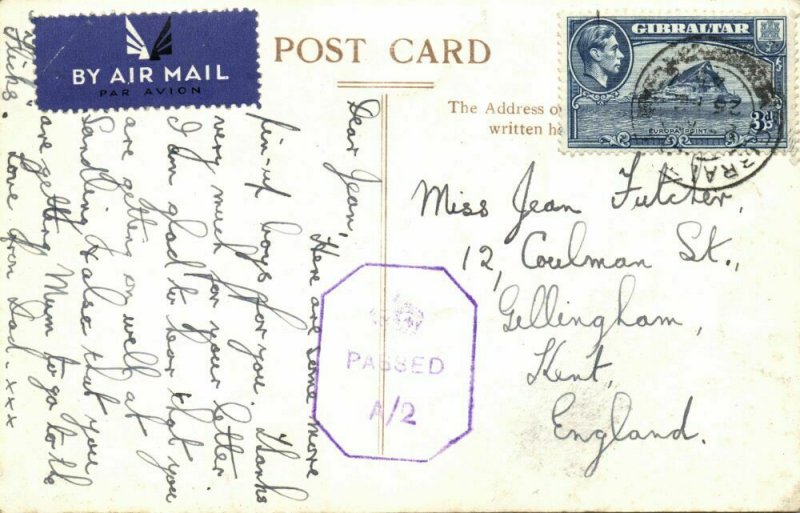 BY AIR MAIL
PAR AVION
POST CARD
The Address o
written he
GIBRALTAR
3d
EUROPA POINT
Dear Jean,
Here are some more
pin-up boys for you. Thanks
very much for your letter
I am glad to hear that you
are getting on well at
Sandling & also that you
are getting Mum to go to the
flicks.
Love from Dad. xxx
Miss Jean Futcher,
12, Coulman St.,
Gillingham,
Kent,
England.
PASSED
A/2